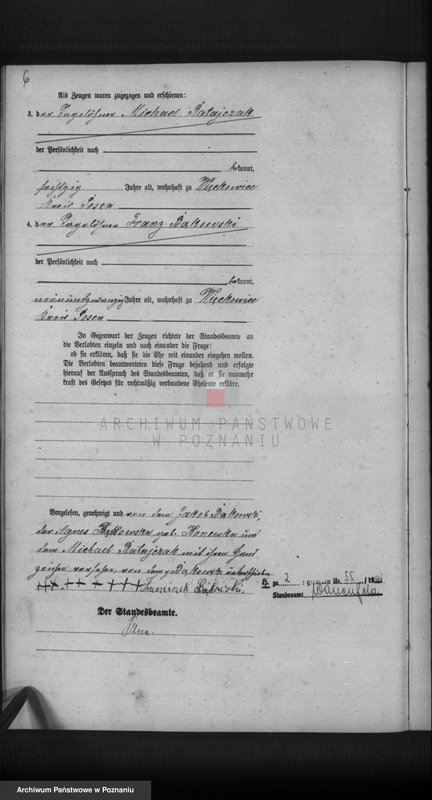 6
Als Zeugen waren zugezogen und erschienen:
3. der Tagelöhner Michael Ratajczak
der Persönlichkeit nach
bekannt,
fünfzig Jahre alt, wohnhaft zu Więckowice
Kreis Posen
4. der Tagelöhner Franz Bąkowski
der Persönlichkeit nach
bekannt,
neunundzwanzig Jahre alt, wohnhaft zu Więckowice
Kreis Posen
In Gegenwart der Zeugen richtete der Standesbeamte an
die Verlobten einzeln und nach einander die Frage:
ob sie erklären, daß sie die Ehe mit einander eingehen wollen.
Die Verlobten beantworteten diese Frage bejahend und erfolgte
hierauf der Ausspruch des Standesbeamten, daß er sie nunmehr
kraft des Gesetzes für rechtmäßig verbundene Eheleute erkläre.
ARCHIWUM PAŃSTWOWE
W POZNANIU
Vorgelesen, genehmigt und von dem Jakob Bąkowski,
der Agnes Bąkowska geb. und
dem Michael Ratajczak mit ihren Hand
zeichen versehen, von dem Bąkowski unterschrieben
+++ +++ +++ Bąkowski.
B zu 2 : Nr. 55 / 19
Standesamt
Der Standesbeamte.
Archiwum Państwowe w Poznaniu